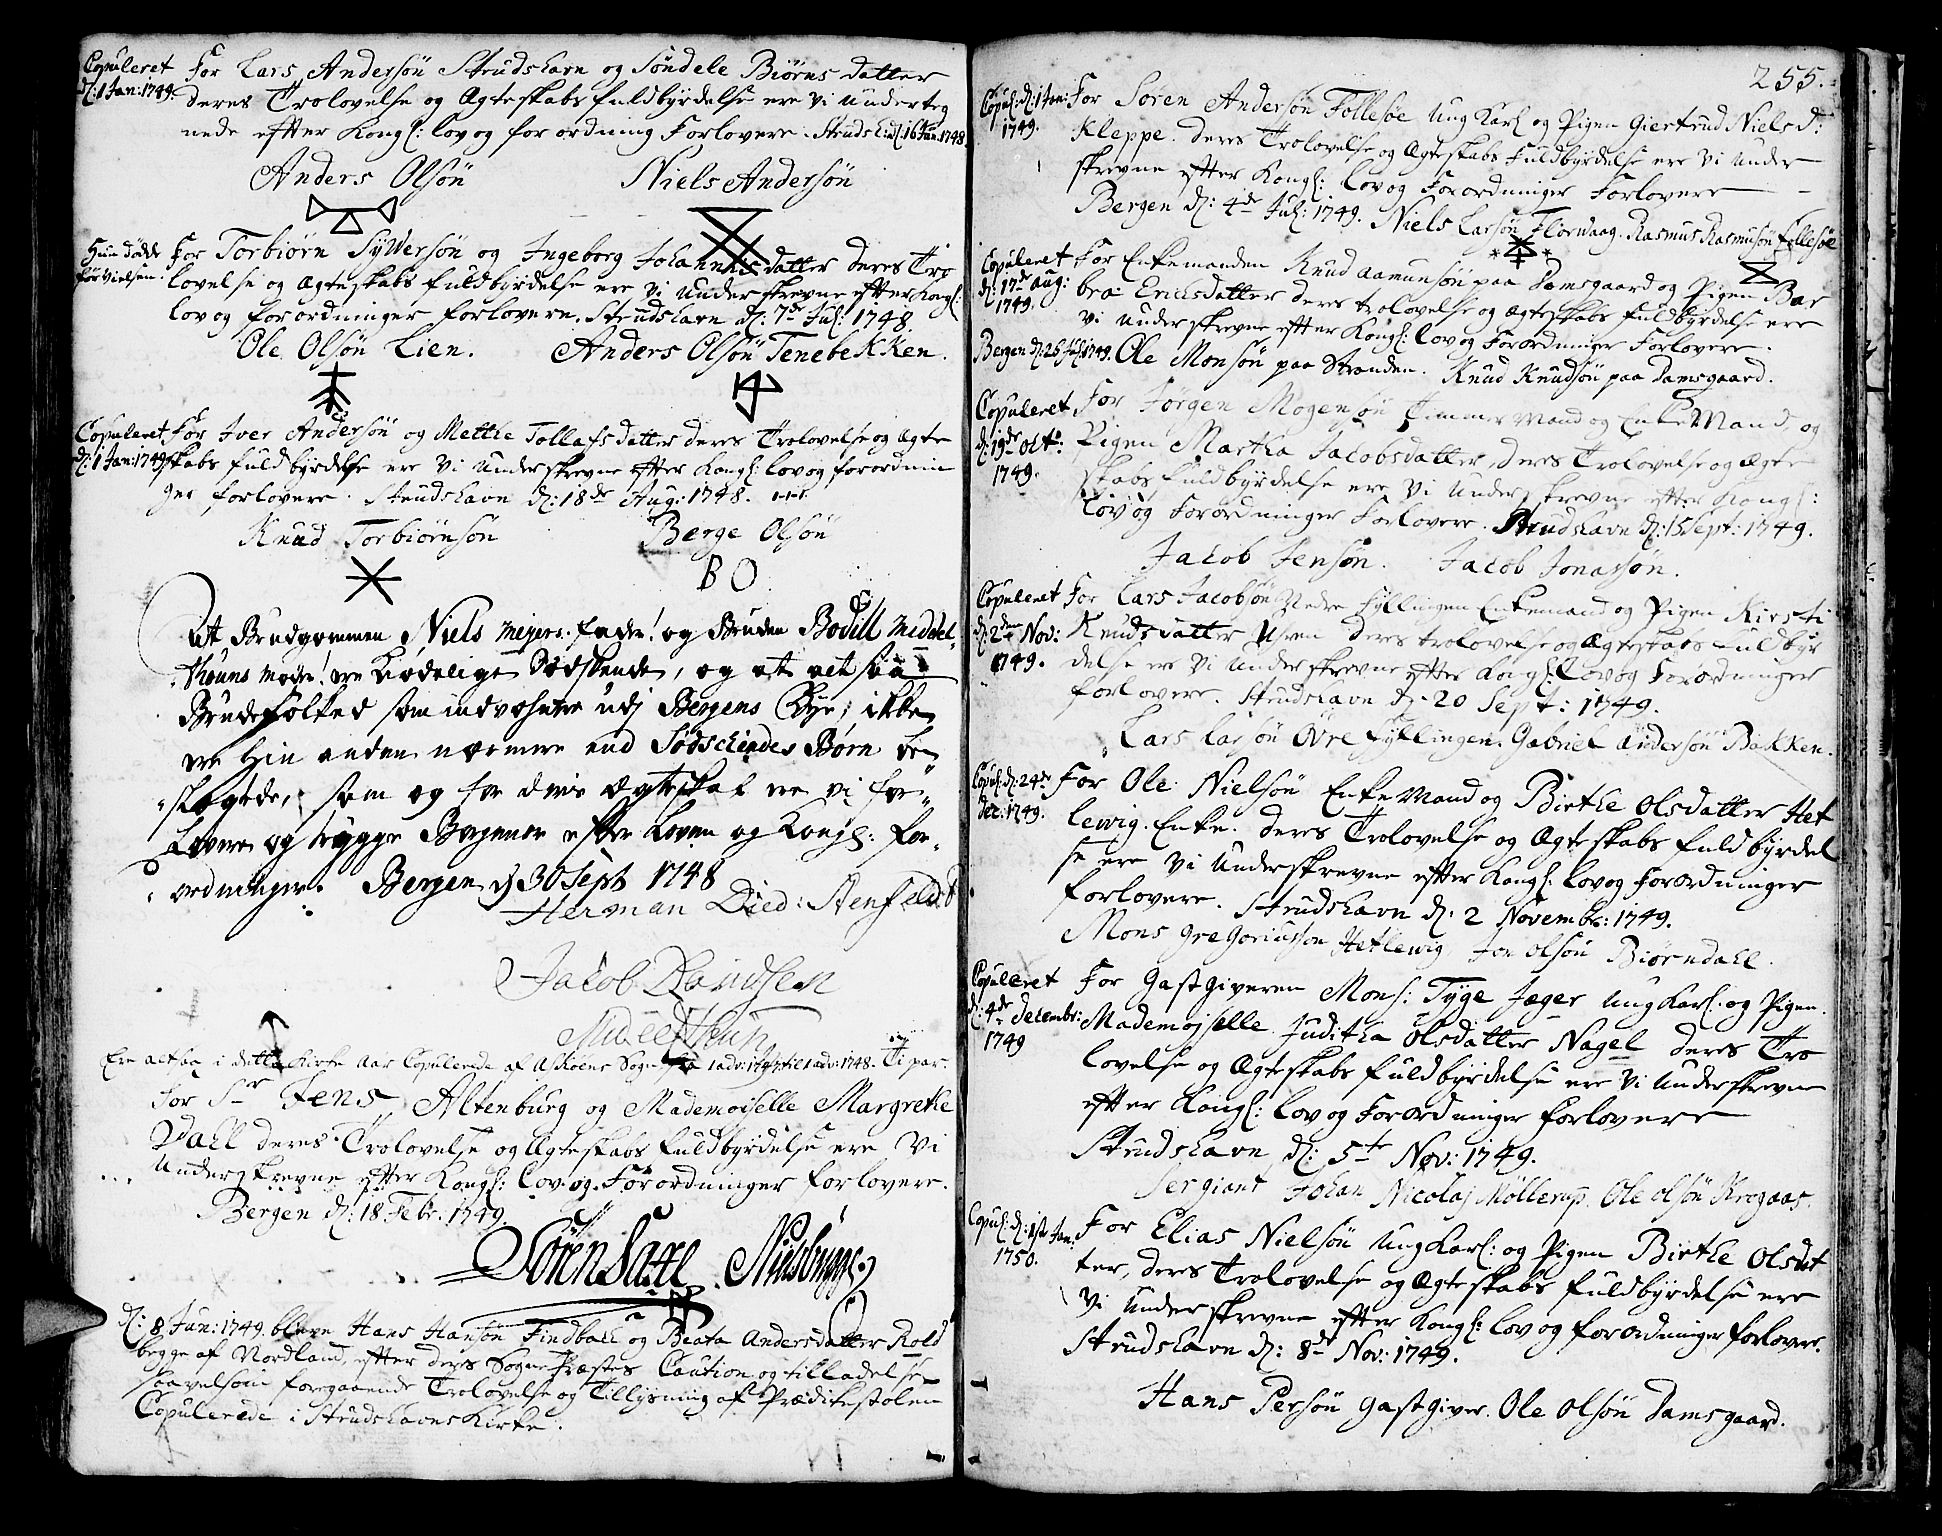 Copuleret
d: 1 Jan: 1749.
For Lars Andersøn Strudshavn og Søndele Biørns datter
deres Trolovelse og Ægteskabs fuldbyrdelse ere vi underteg
nede efter Kongl: Lov og for ordning Forlovere. Strudsh: d: 16 Jun: 1748.
Anders Olsøn Niels Andersøn
Hun døde
før Vielsen.
For Torbiørn Syversøn og Ingeborg Johannis datter deres Tro
lovelse og Ægteskabs fuldbyrdelse ere vi underskrevne efter Kongl:
Lov og forordninger forlovere. Strudshavn d: 7de Jul: 1748
Ole Olsøn Lien. Anders Olsøn Tenebekken.
Copuleret
d: 1 Jan: 1749
For Iver Andersøn og Mette Tollafsdatter deres Trolovelse og Ægte
skabs fuldbyrdelse ere vi underskrevne efter Kongl: Lov og forordnin
ger forlovere. Strudshavn d: 18de Aug: 1748.
Knud Torbiørnsøn Berge Olsøn
B O
At Brudgommen Niels Meyers fader og Bruden Bodill Middel
thuns moder ere Kiødelige Sødskende, og at altsaa
Brudefolked som indvohnere udj Bergens Bye, ikke
ere hin anden nærmere end Sødschindes Børn be-
slægtede, som og for deris Ægteskab ere vi for-
lovere og trygge Borgener efter Loven og Kongl: for-
ordninger. Bergen d 30 Sept 1748
Herman Died: Stenfeldt
Jacob Davidsen
Middelthun
Ere altsaa i dette Kirke Aar Copulerede af Askøens Sogn fra 1 adv: 1747 til 1 adv: 1748. Ti par.
For Sr Jens Altenburg og Mademoiselle Margrethe
Dahl deres Trolovelse og Ægteskabs fuldbyrdelse ere vi
underskrevne efter Kongl: Lov og Forordninger forlovere.
Bergen d: 18 Febr. 1749.
Søren Saxe Niels bygge
d: 8 Jun: 1749. bleve Hans Hansøn Findball og Beata Andersdatter Rold
begge af Nordland, efter deres Sogne Præstes Caution og tilladelse
saavelsom foregaaende Trolovelse og Tillysning af Prædikestolen
Copulerede i Strudshavns Kirke.
255.
Copul: d: 1 Jan:
1749.
For Søren Andersøn Follesøe Ung Karl og Pigen Giertrud Niels d:
Kleppe. deres Trolovelse og Ægteskabs Fuldbyrdelse ere vi under
skrevne efter Kongl: Lov og Forordninger Forlovere
Bergen d: 4de Jul: 1749. Niels Larsøn Florvaag. Rasmus Rasmusøn Follesøe
Copuleret
d: 17de Aug:
1749.
For Enkemanden Knud Aamunsøn paa Damsgaard og Pigen Bar
bra Ericksdatter deres trolovelse og ægteskabs fuldbyrdelse ere
vi underskrevne efter Kongl: Lov og Forordninger Forlovere.
Bergen d: 26 Jul: 1749. Ole Monsøn paa Stranden. Knud Knudsøn paa Damsgaard.
Copuleret
d: 19de Oct:
1749.
For Jørgen Mogensøn Timmermand og EnkeMand, og
Pigen Martha Jacobsdatter, deres Trolovelse og Ægte
skabs fuldbyrdelse ere vi underskrevne efter Kongl:
Lov og Forordninger Forlovere. Strudshavn d: 15 Sept: 1749.
Jacob Jensøn. Jacob Jonasøn.
Copuleret
d: 2den Nov:
1749.
For Lars Jacobsøn Nedre Fyllingen Enkemand og Pigen Kirsti
Knudsdatter Uren deres trolovelse og Ægteskabs fuldbyr
delse ere vi underskrevne efter Kongl: Lov og Forordninger
forlovere. Strudshavn d: 20 Sept: 1749.
Lars Larsøn Øvre fyllingen. Gabriel Andersøn Bakken.
Copul: d: 24de
Dec: 1749.
For Ole Nielsøn EnkeMand og Birthe Olsdatter Het
lewig. Enke. deres Trolovelse og Ægteskabs fuldbyrdel
se ere vi underskrevne efter Kongl: Lov og Forordninger
forlovere. Strudshavn d: 2 Novembr: 1749.
Mons Gregoriussøn Hetlewig Jon Olsøn Biørndahl.
Copuleret
d: 4de Decembr:
1749
For Gastgiveren Mons: Tyge Jæger Ung Karl og Pigen
Mademojselle Juditha Olsdatter Nagel deres Tro
lovelse og Ægteskabs fuldbyrdelse ere vi underskrevne
efter Kongl: Lov og Forordninger forlovere
Strudshavn d: 5te Nov: 1749.
Sergiant Johan Nicolaj Møllerup. Ole Olsøn Krogaas.
Copul: d: 1st Jan:
1750.
For Elias Nielsøn Ung Karl: og Pigen Birthe Olsdat
ter, deres Trolovelse og Ægteskabs fuldbyrdelse ere
vi underskrevne efter Kongl: Lov og forordninger forlover.
Strudshavn d: 8de Nov: 1749.
Hans Persøn Gastgiver. Ole Olsøn Damsgaard.